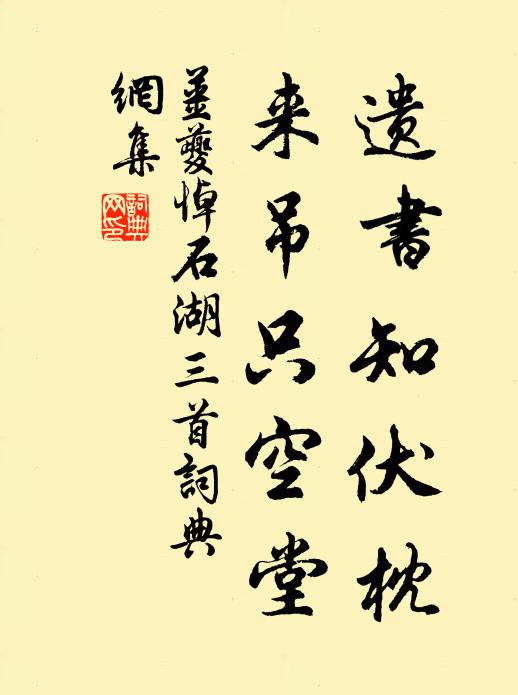 遗書知伏枕
来吊只空堂
姜夔悼石湖三首詞典
網集
詞典
网印